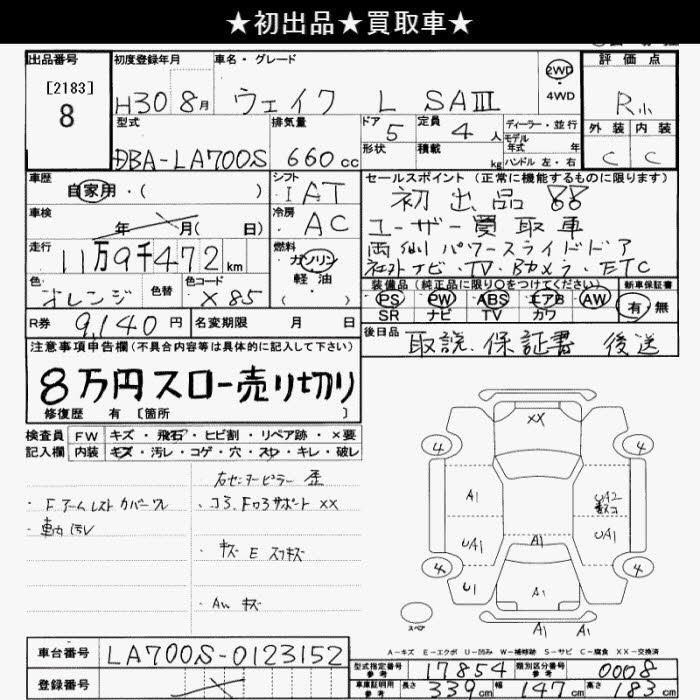 ★初出品★買取車★
出品番号
[2183]
8
初度登録年月
H30 8月
車名・グレード
ウェイク L SAⅢ
2WD
4WD
評価点
R小
外装 内装
C C
型式
DBA-LA700S
排気量
660cc
ドア 5
形状
定員 4人
積載 kg
ディーラー・並行
モデル年式 年
ハンドル 左・右
車歴
自家用・( )
車検
年 月( 日)
走行
11万9千472km
色
オレンジ
色替
色コード
X85
シフト
IAT
冷房
AC
燃料
ガソリン
軽油
( )
セールスポイント (正常に機能するものに限ります)
初出品 88
ユーザー買取車
両側パワースライドドア
社外ナビ・TV・Bカメラ・ETC
装備品 (純正品に限り○をつけてください)
PS PW ABS エアB AW
SR ナビ TV カワ
新車保証書
有・無
R券 9,140円
名変期限 月 日
後日品 取説.保証書 後送
注意事項申告欄(不具合内容等は具体的に記入して下さい)
8万円スロー売り切り
修復歴 有 [箇所 ]
検査員 FW キズ・飛石・ヒビ割・リペア跡・×要
記入欄 内装 キズ・汚レ・コゲ・穴・スレ・キレ・破レ
右センターピラー 歪
・Fアームレスト カバーワレ
・コラ.Fロアサポート XX
・車内汚レ
・キズ E スリキズ
・AW キズ
XX
4
4
A1
UA2
UA1
UA1
A1
4
4
U1
A1
スペア
A1 A1
A-キズ E-エクボ U-凹み W-補修跡 S-サビ C-腐食 XX-交換済
車台番号 LA700S-0123152
登録番号
型式指定番号 参考 17854
類別区分番号 参考 0008
車庫証明用 参考 長さ 339cm 幅 147cm 高さ 183cm